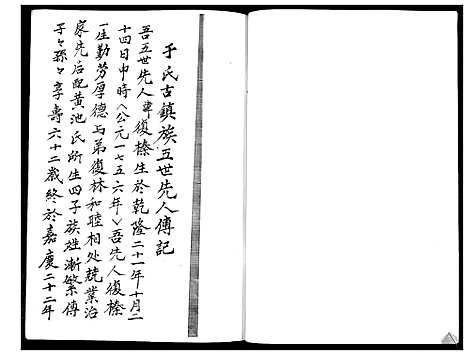 于氏古鎮族五世先人傳記
吾五世先人諱復榛生於乾隆二十一年十月二
十四日申時〈公元一七五六年〉吾先人復榛
一生勤劳厚德与弟復林和睦相处兢業治
家先后配黄池氏所生四子族姓漸繁傳
子々孫々享壽六十二歲終於嘉慶二十二年